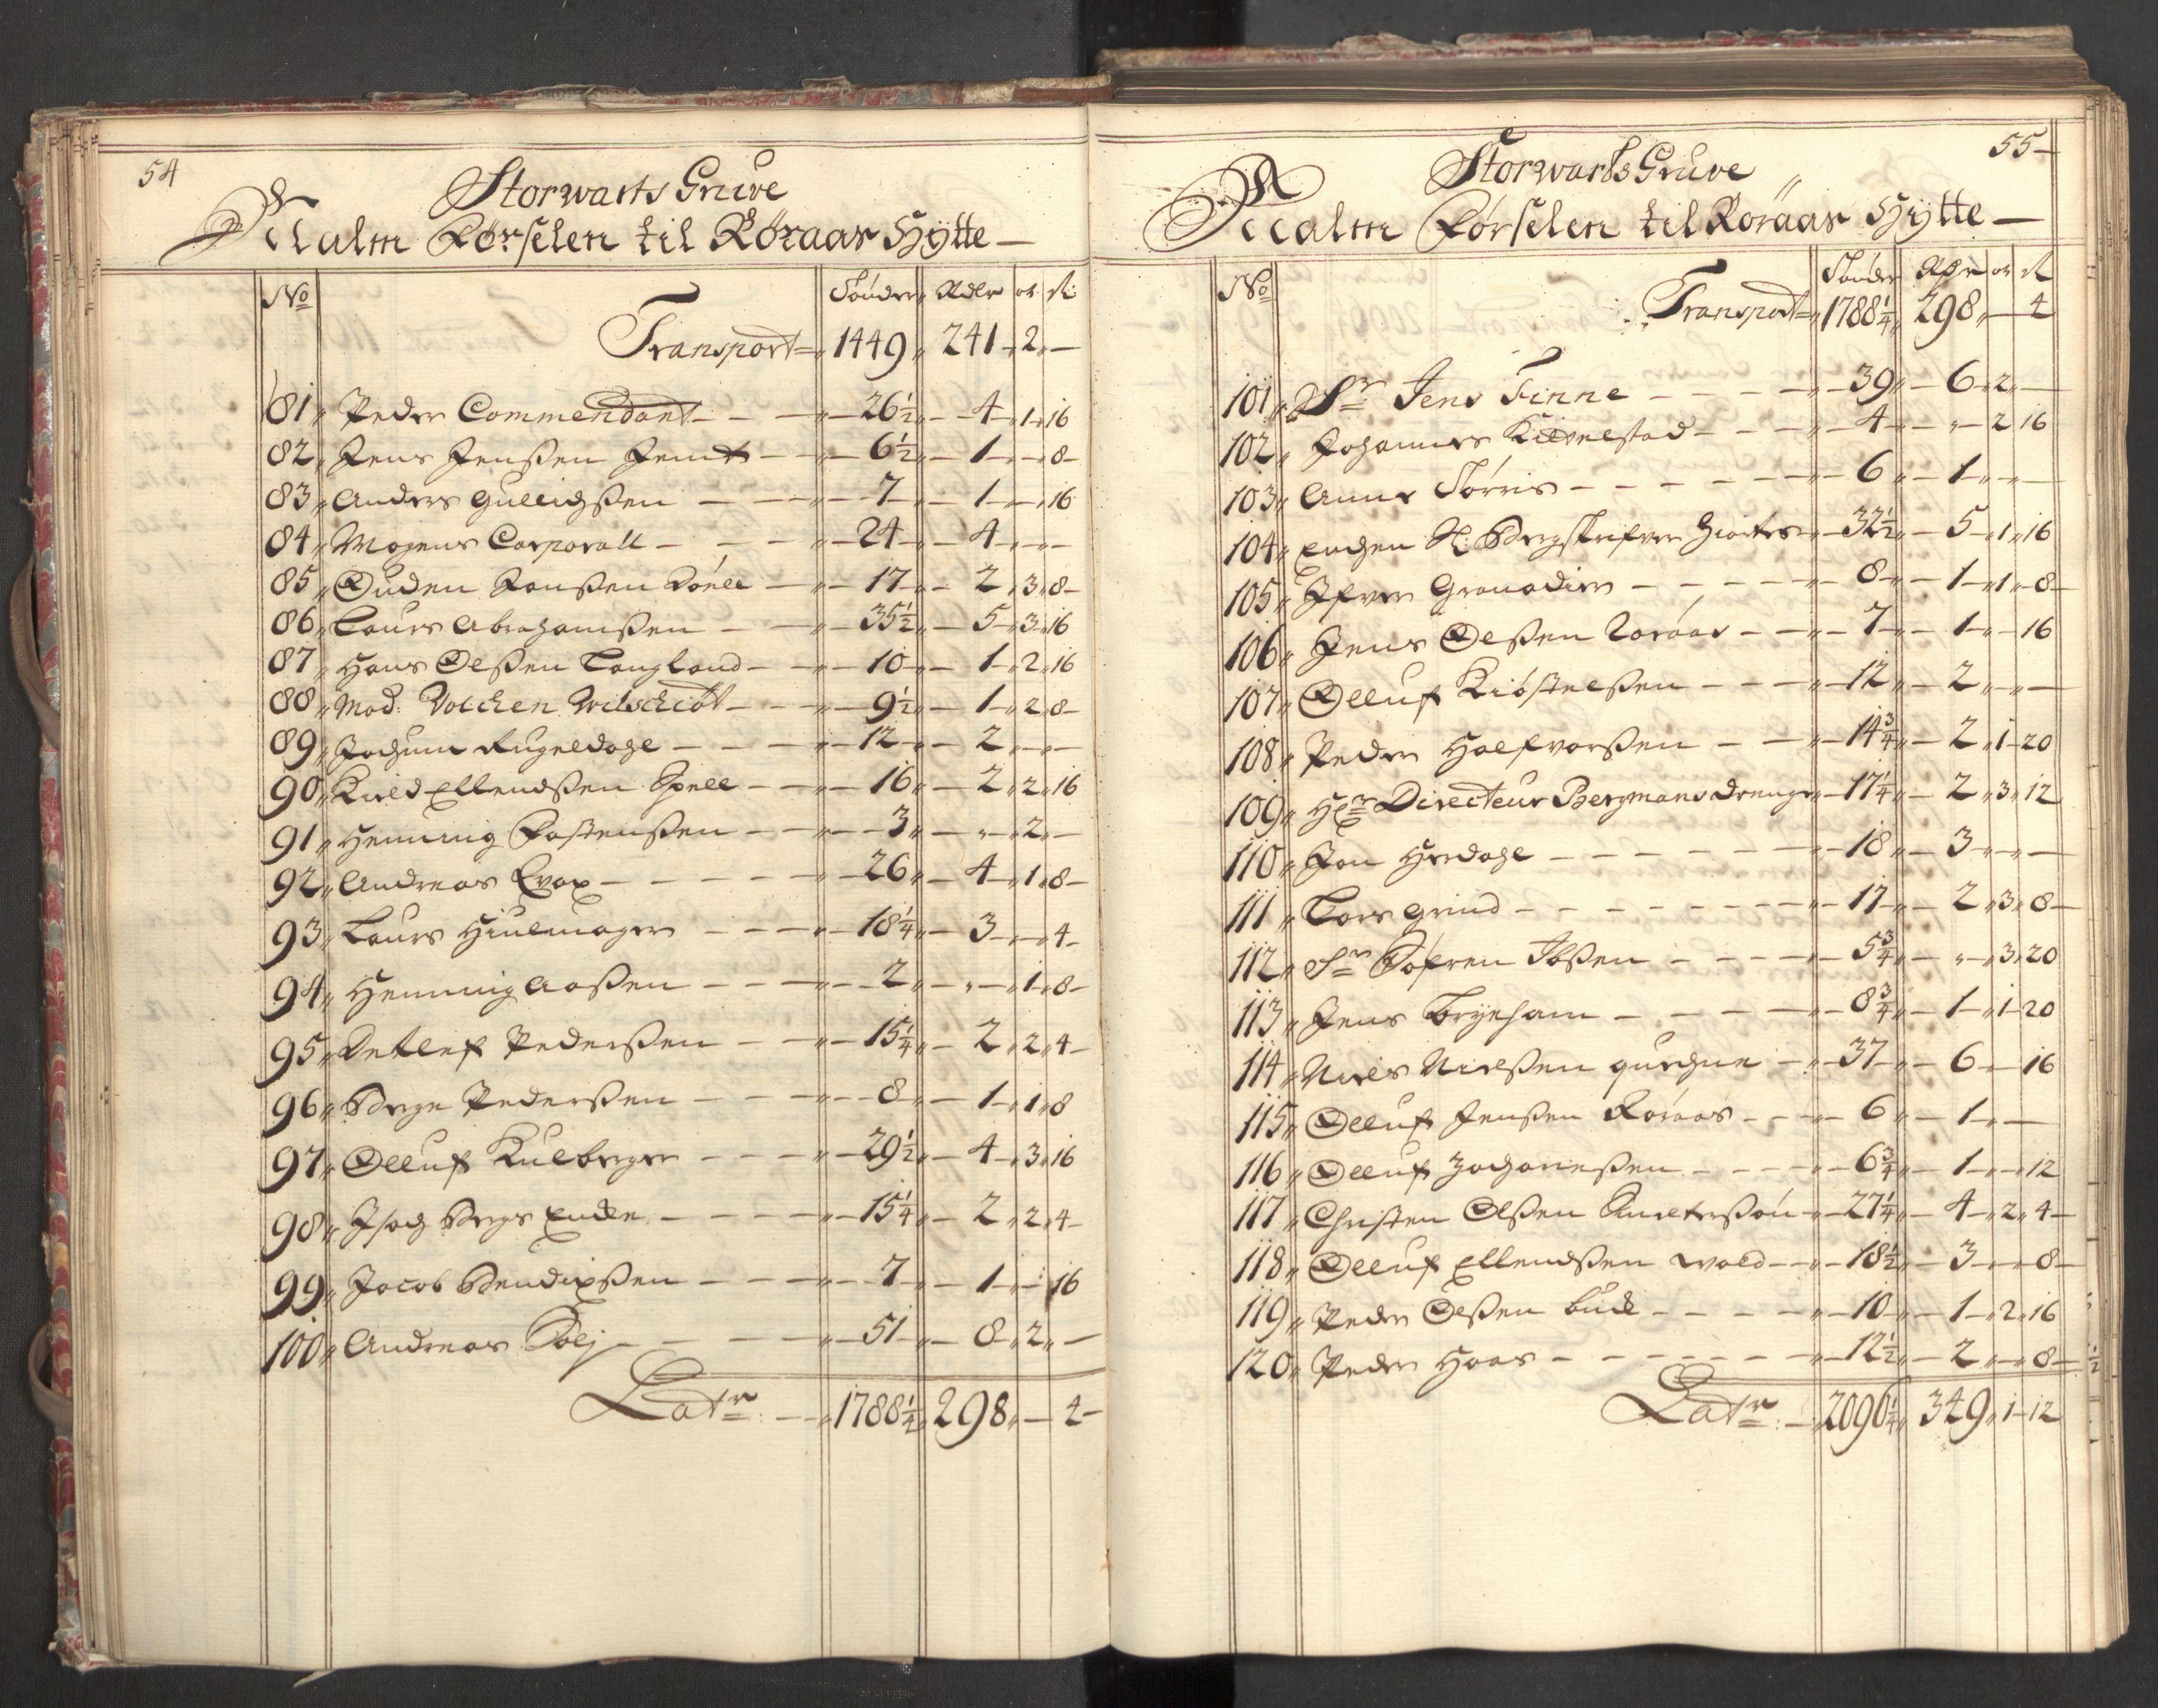 54
Storwarts Gruve
Malm Førselen til Røraas Hÿtte
No Tønder Rdlr ort ß
Transport 1449 241 2 —
81 Peder Commendant 26½ 4 1 16
82 Jens Jenßen Jemt 6½ 1 — 8
83 Anders Gullichßen 7 1 — 16
84 Mogens Corporall 24 4 — —
85 Ouden Jonßen 17 2 3 8
86 Laurs Abrahamßen 35½ 5 3 16
87 Hans Olßen Langland 10 1 2 16
88 Mad: Volchen 9½ 1 2 8
89 Jochum Rugeldahl 12 2 — —
90 Kield Ellendßen Spell 16 2 2 16
91 Henning Fastenßen 3 — 2 —
92 Andreas 26 4 1 8
93 Laurs Hiulmager 18¼ 3 — 4
94 Henning Aaßen 2 — 1 8
95 Detlef Pederßen 15¼ 2 2 4
96 Børge Pederßen 8 1 1 8
97 Olluf Kulbrger 29½ 4 3 16
98 Isach Bergs Enke 15¼ 2 2 4
99 Jacob Bendixßen 7 1 — 16
100 Andreas 51 8 2 —
Latr 1788¼ 298 — 4
55
Storwarts Gruve
Malm Førselen til Røraas Hÿtte
No Tønder Rdlr ort ß
Transport 1788¼ 298 — 4
101 Sr Jens Finne 39 6 2 —
102 Johannes 4 — 2 16
103 Anne Tørris 6 1 — —
104 Enchen Sl: Bergskrifver 32½ 5 1 16
105 Ifver Granadier 8 1 1 8
106 Jens Olßen Røraas 7 1 — 16
107 Olluf Kiøstelßen 12 2 — —
108 Peder Halfvorßen 14¾ 2 1 20
109 Hr Directeur Bergmans drenge 17¼ 2 3 12
110 Jon Herdahl 18 3 — —
111 Lars Grind 17 2 3 8
112 Sr Søfren Ibßen 5¾ — 3 20
113 Jens Bryhan 8¾ 1 1 20
114 Niels Nielßen 37 6 — 16
115 Olluf Jenßen Røraas 6 1 — —
116 Olluf Johanneßen 6¾ 1 — 12
117 Christen Olßen 27¼ 4 2 4
118 Olluf Ellendßen Wold 18½ 3 — 8
119 Peder Olßen Bude 10 1 2 16
120 Peder Haas 12½ 2 — 8
Latr 2096¼ 349 1 12